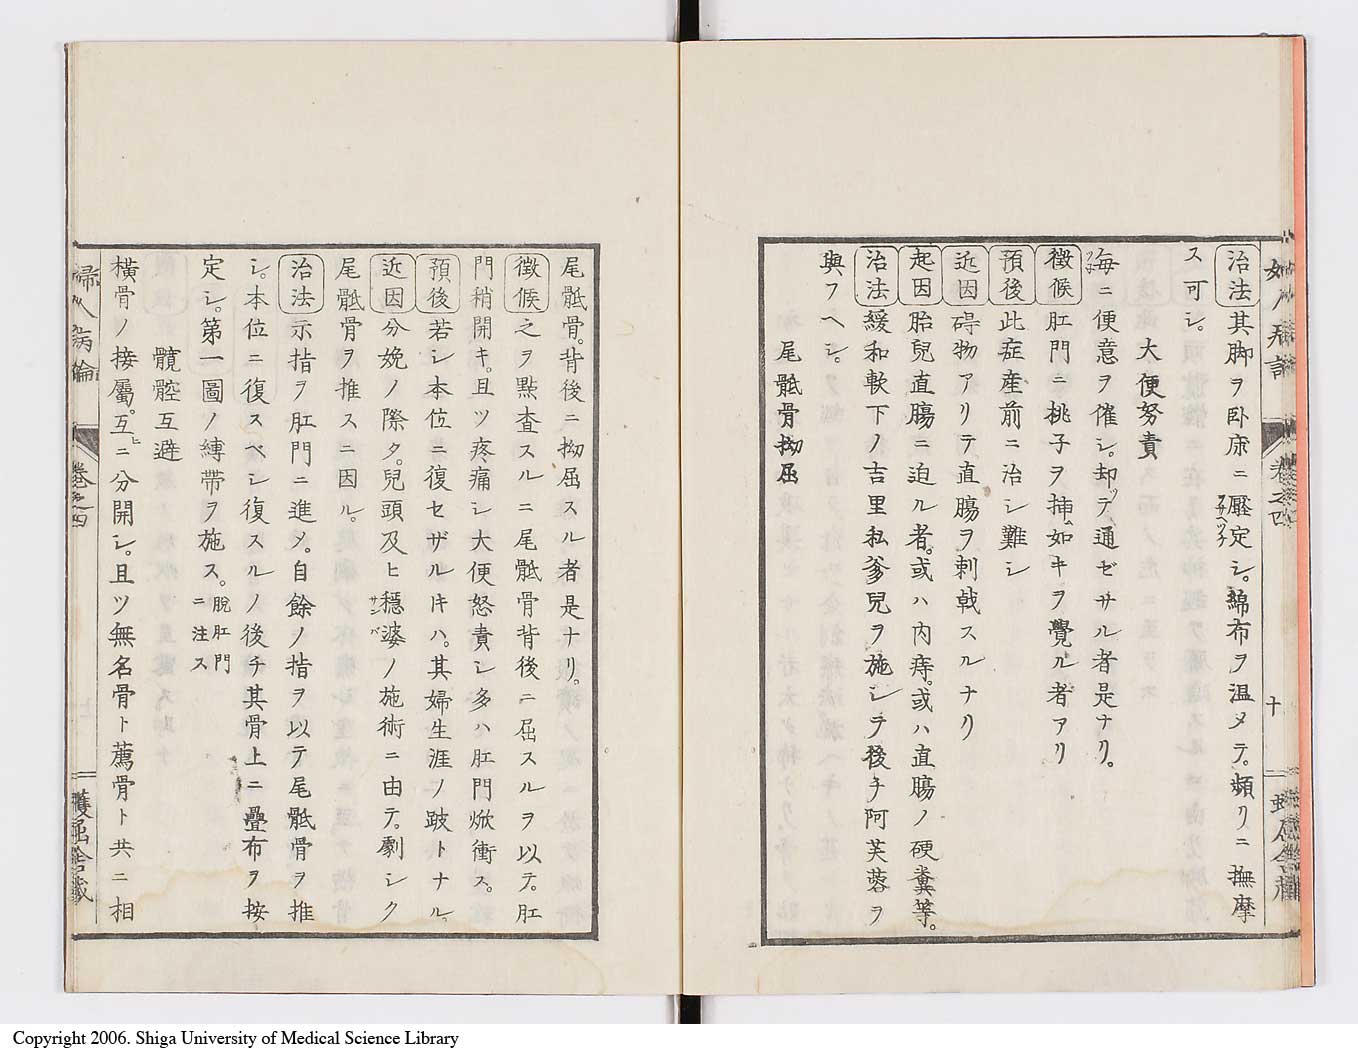 治法其脚ヲ臥床ニ壓定シ。綿布ヲ温メテ。頻リニ撫摩
ス可シ。
大便努責
毎ニ便意ヲ催シ。却ッテ通ゼザル者是ナリ。
徴候肛門ニ桃子ヲ挿ム如キヲ覺ル者アリ
預後此症産前ニ治シ難シ
近因碍物アリテ直膓ヲ刺戟スルナリ
起因胎兒直膓ニ迫ル者。或ハ内痔。或ハ直膓ノ硬糞等。
治法緩和軟下ノ吉里私爹兒ヲ施シテ後チ阿芙蓉ヲ
與フヘシ。
尾骶骨拗屈
卷之四
十
尾骶骨。背後ニ拗屈スル者是ナリ。
徴候之ヲ㸃査スルニ尾骶骨背後ニ屈スルヲ以テ。肛
門稍開キ。且ツ疼痛シ大便怒責シ多ハ肛門焮衝ス。
預後若シ本位ニ復セザルトキハ。其婦生涯ノ跛トナル。
近因分娩ノ際タ。兒頭及ヒ穩婆ノ施術ニ由テ。劇シク
サンバ
尾骶骨ヲ推スニ因ル。
治法示指ヲ肛門ニ進メ。自餘ノ指ヲ以テ尾骶骨ヲ推
シ。本位ニ復スベシ復スルノ後チ其骨上ニ疊布ヲ按
定シ。第一圖ノ縛帶ヲ施ス。脱肛門ニ注ス
髖骱互避
横骨ノ接屬。互ヒニ分開シ。且ツ無名骨ト薦骨ト共ニ相
婦人病論
卷之四
蠖屈舍藏
Copyright 2006. Shiga University of Medical Science Library